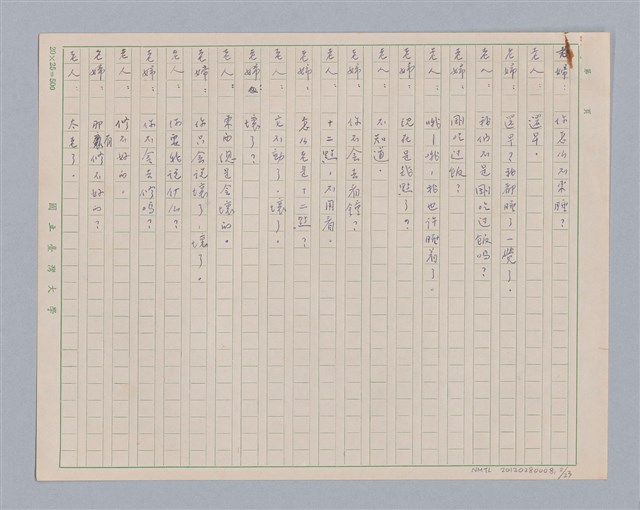 老婦：你怎么不來睡？
老人：還早。
老婦：還早？我都睡了一覺了。
老人：我們不是剛吃过飯嗎？
老婦：剛吃过飯？
老人：哦——我，我也许睡着了。
老婦：現在是幾點了？
老人：不知道。
老婦：你不会去看鐘？
老人：十二點，不用看。
老婦：怎么老是十二點？
老人：它不動了。壞了。
老婦：壞了？
老人：東西混是会壞的。
老婦：你只会說壞了，壞了。
老人：你要我说什么？
老婦：你不会去修嗎？
老人：修不好的。
老婦：那有修不好的？
老人：太老了。
第 頁
20×25=500
國立臺灣大學
NMTL 20120280008, 2/23